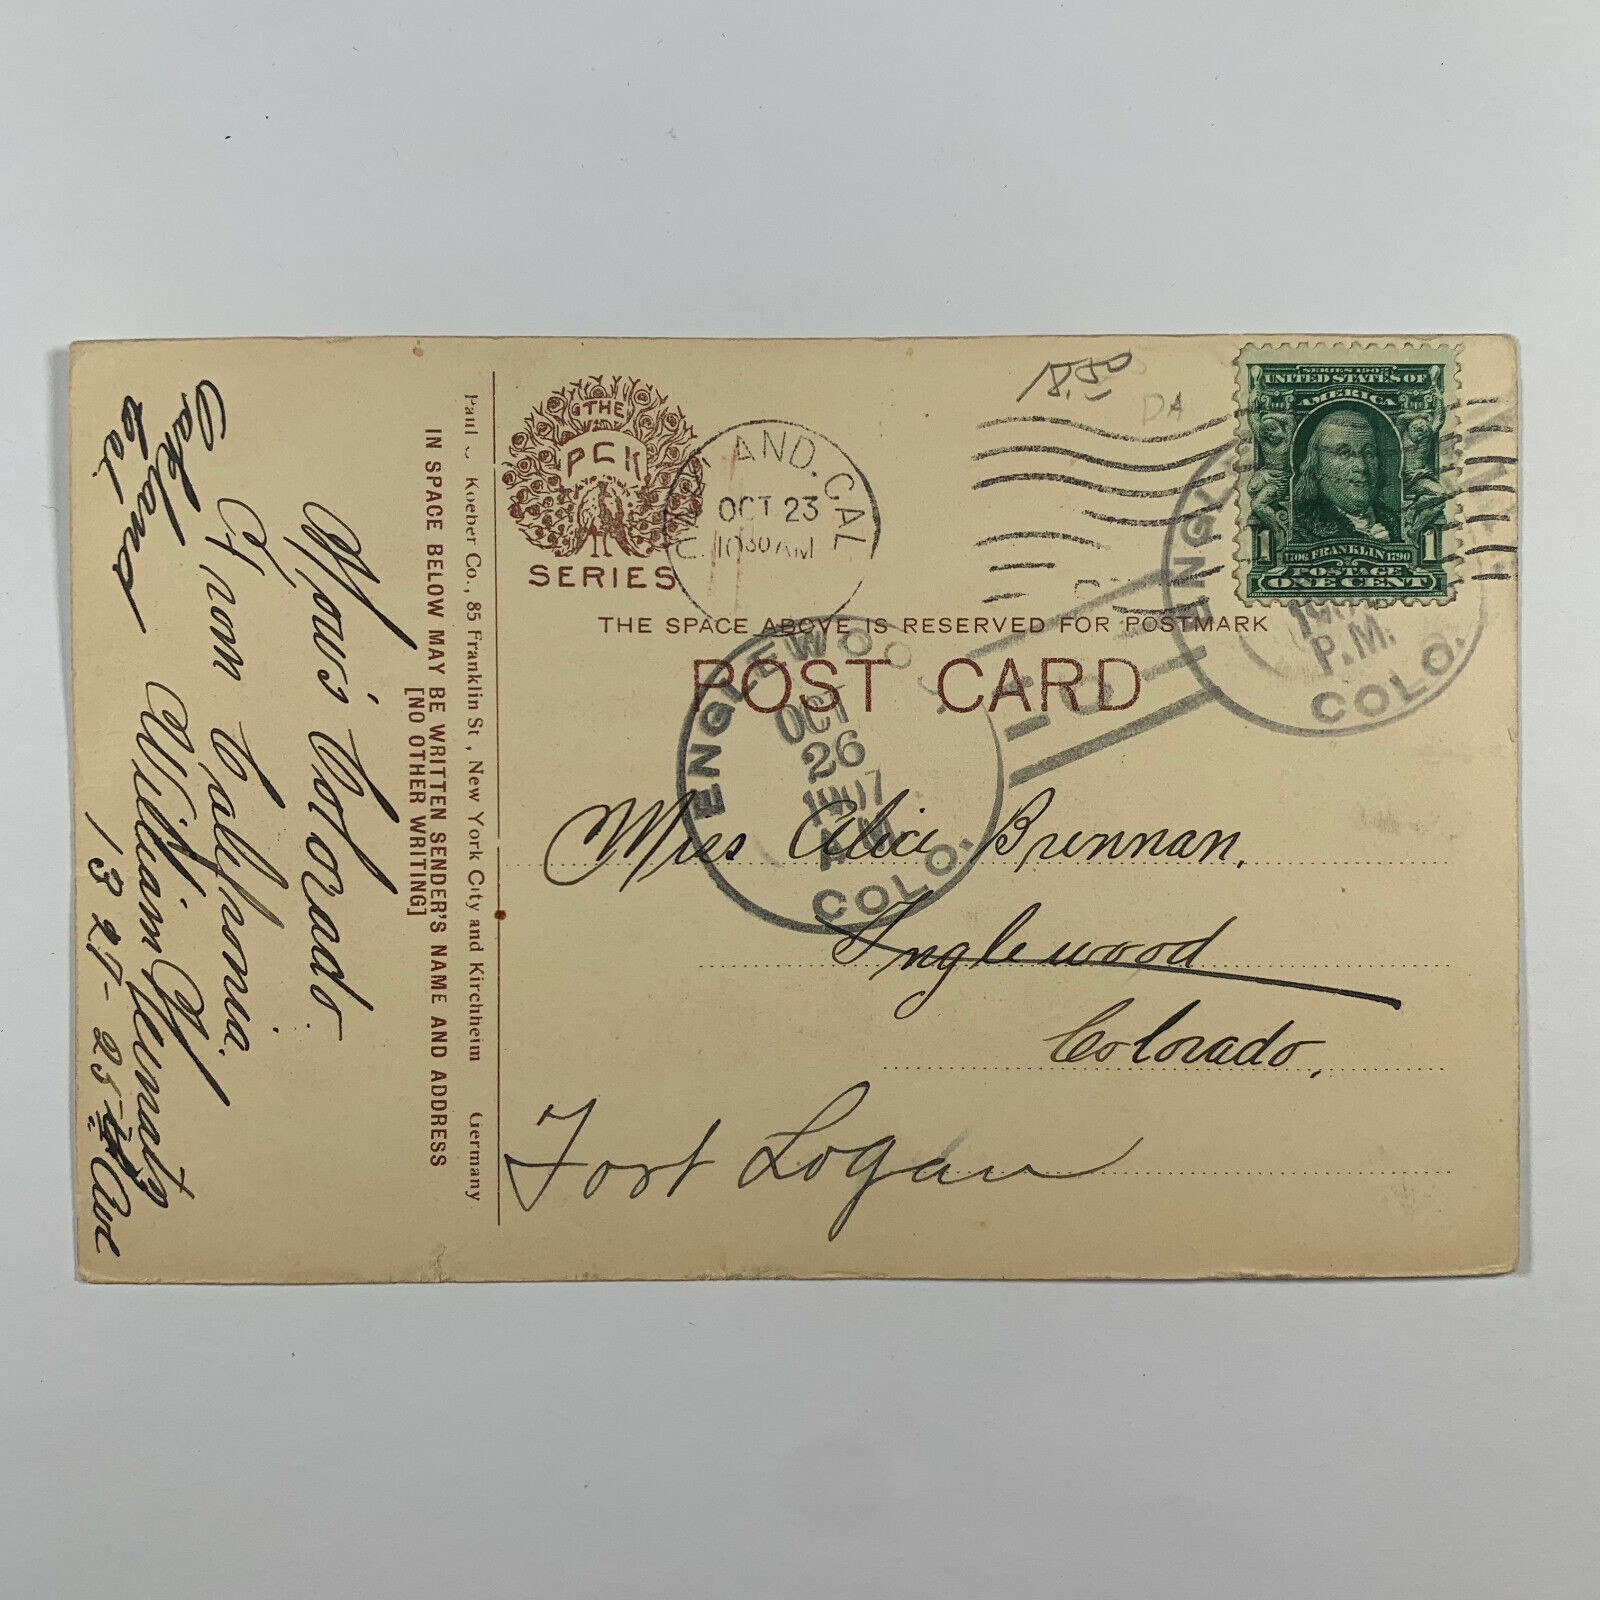 How's Colorado
From California.
William Heimats
1327-25th Ave
Oakland
Cal
IN SPACE BELOW MAY BE WRITTEN SENDER'S NAME AND ADDRESS
[NO OTHER WRITING]
Paul C Koeber Co., 85 Franklin St, New York City and Kirchheim Germany.
THE
PCK
SERIES
AND. CAL
OCT 23
1030 AM
18.50
DA
SERIES 1902
UNITED STATES OF
AMERICA
1 1706 FRANKLIN 1790 1
POSTAGE
ONE CENT
THE SPACE ABOVE IS RESERVED FOR POSTMARK
POST CARD
ENGLEWOO
OCT
26
1907
A.M.
COLO.
ENGL
P.M.
COLO.
Miss Alice Brennan.
Inglewood
Colorado.
Fort Logan